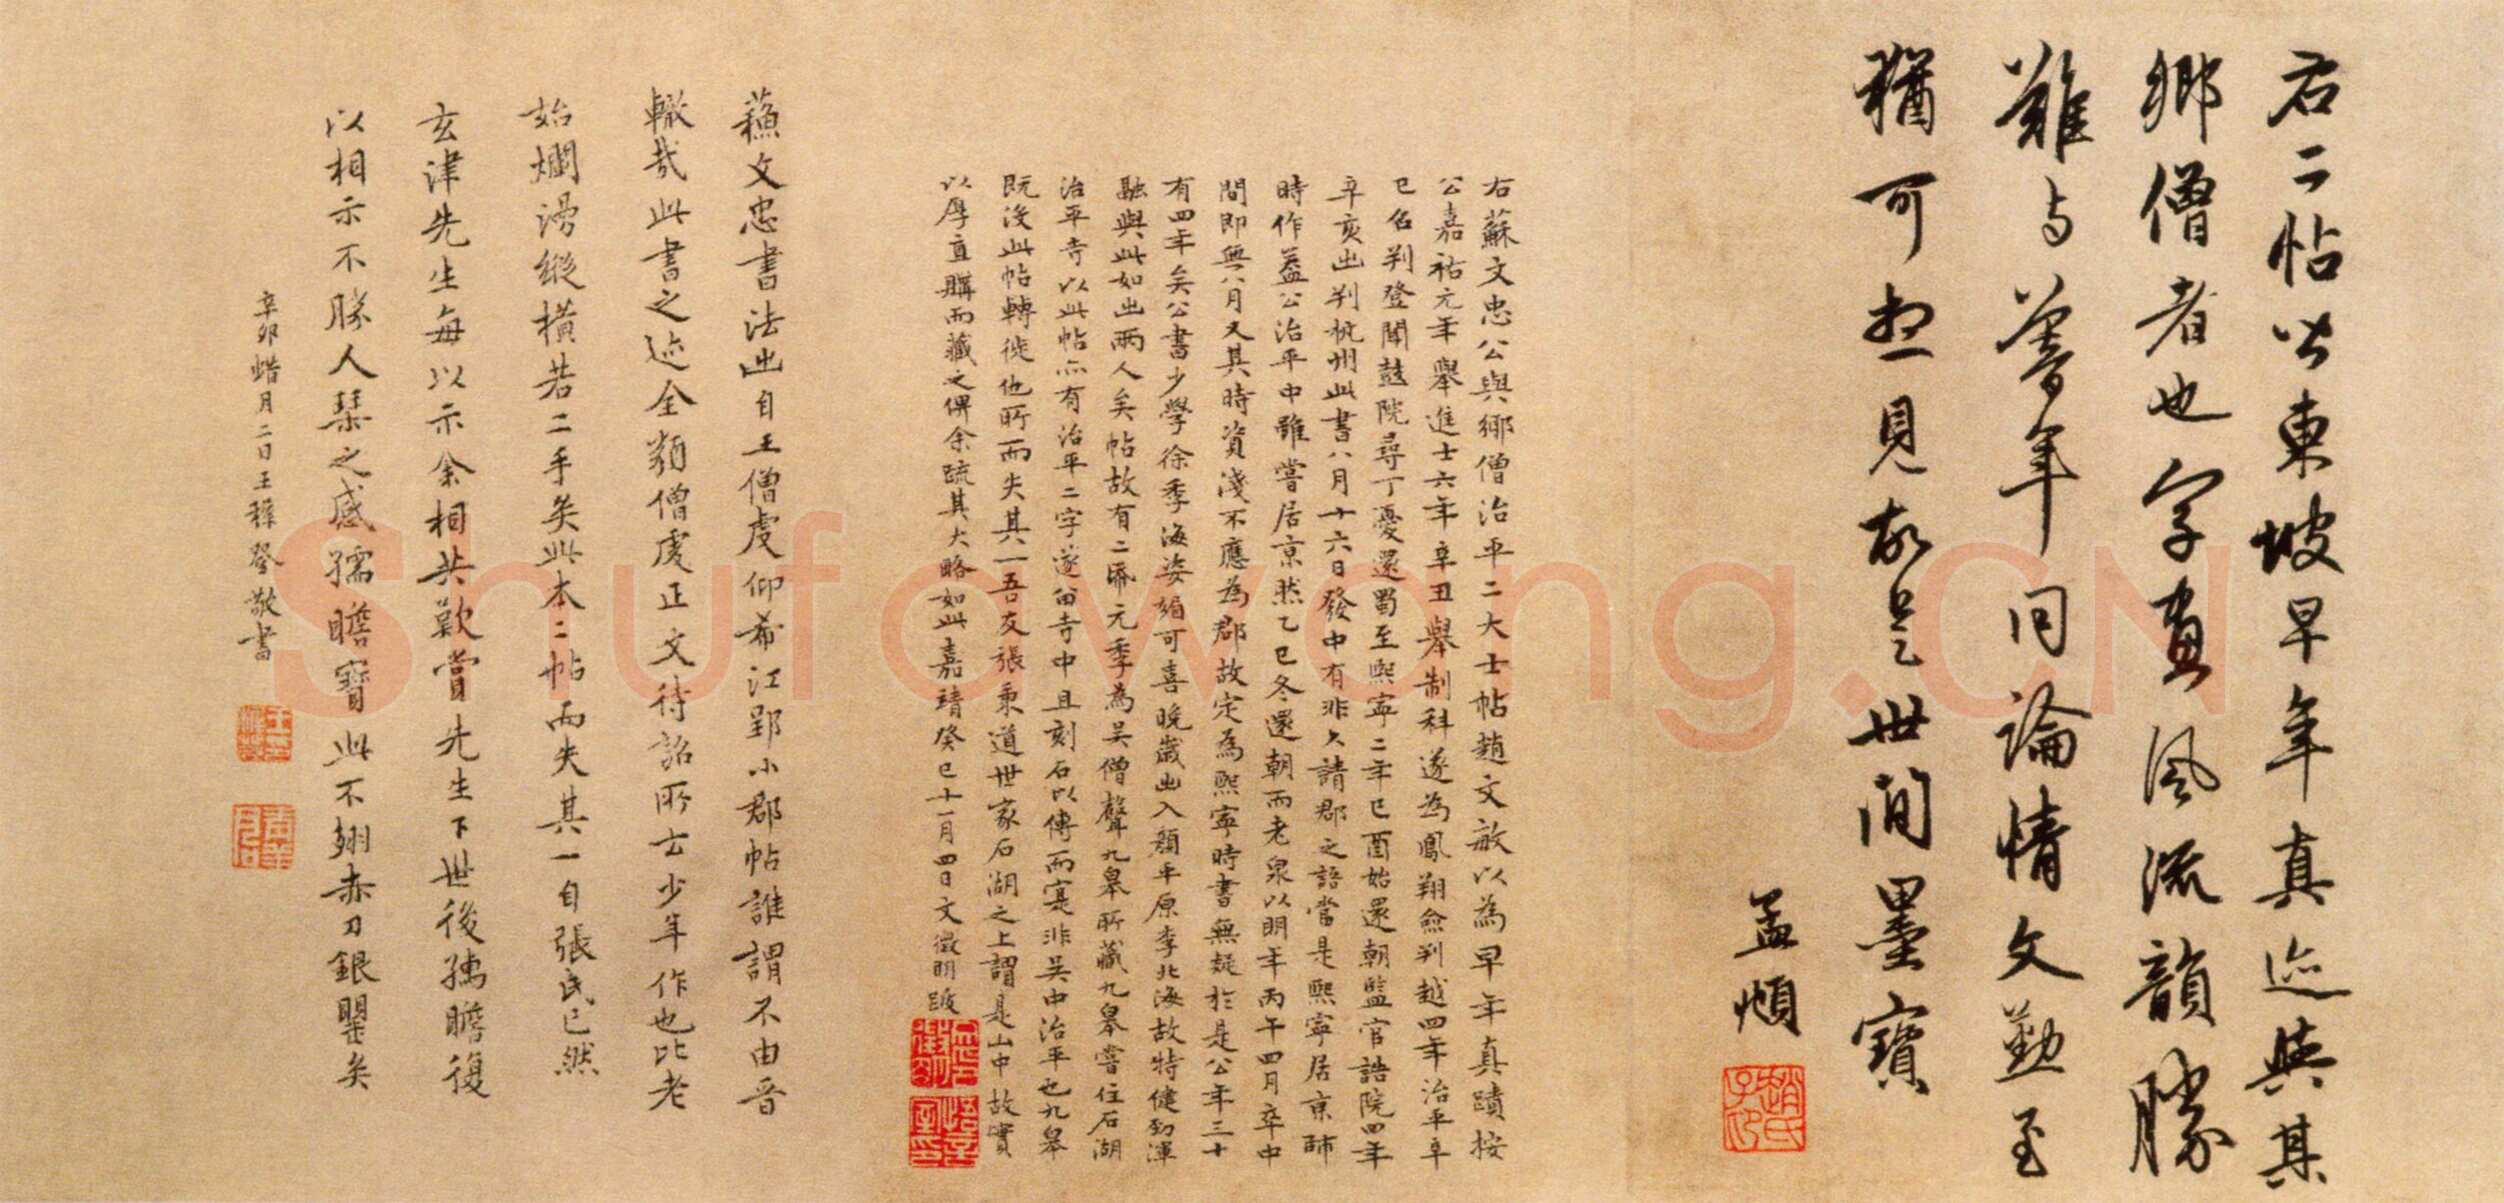 右二帖皆東坡早年真迹與其
鄉僧者也字畫風流韻勝
難与暮年同論情文勤至
猶可想見故是世间墨寶
孟頫
右蘇文忠公與鄉僧治平二大士帖趙文敏以為早年真蹟按
公嘉祐元年舉進士六年辛丑舉制科遂為鳳翔僉判越四年治平
乙巳名判登聞鼓院尋丁憂還蜀至熙寧二年巳酉始還朝監官誥院四年
辛亥出判杭州此書八月十六日發中有非久請郡之語當是熙寧居京師
時作蓋公治平中雖嘗居京然乙巳冬還朝而老泉以明年丙午四月卒中
間即無八月又其時資淺不應為郡故定為熙寧時書無疑於是公年三十
有四年矣公書少學徐季海姿媚可喜晚歲出入顏平原李北海故特健勁渾
融與此如出兩人矣帖故有二帋元季為吴僧聲九皋所藏九皋嘗住石湖
治平寺以此帖亦有治平二字遂留寺中且刻石以傳而寔非吴中治平也九皋
既没此帖轉徙他所而失其一吾友張秉道世家石湖之上謂是山中故實
以厚直購而藏之俾余疏其大略如此嘉靖癸巳十一月四日文徵明跋
蘇文忠書法出自王僧虔仰希江郢小郡帖誰謂不由晋
轍哉此書之迹全類僧虔正文待詔所云少年作也比老
始爛漫縱橫若二手矣此本二帖而失其一自張氏已然
玄津先生每以示余相共歎賞先生下世後孺瞻復
以相示不勝人琴之感孺瞻寶此不翅赤刀銀甖矣
辛卯蜡月二日王穉登敬書
Shufawang.CN